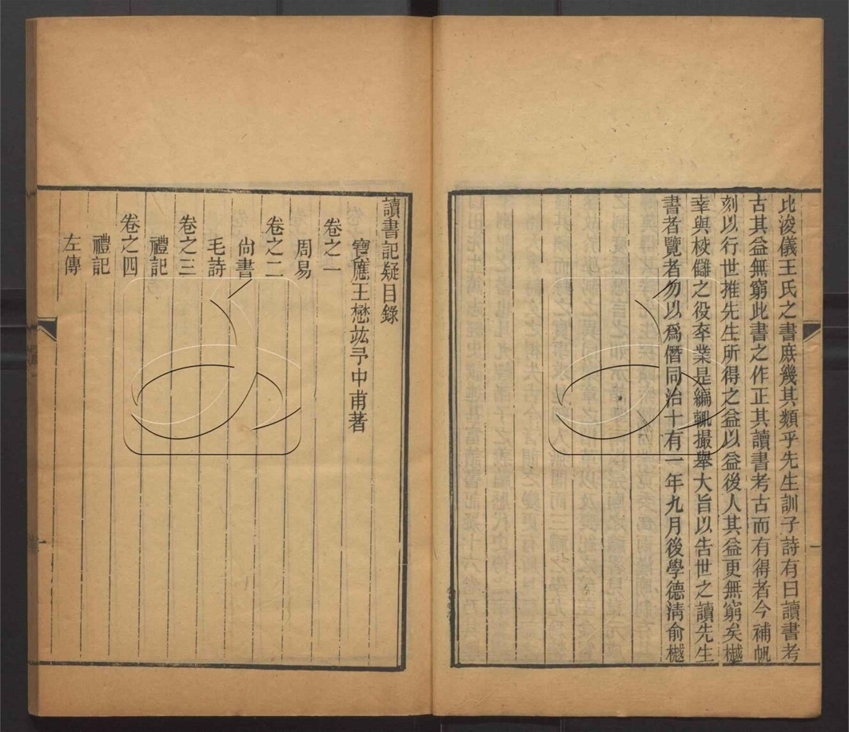 比浚儀王氏之書庶幾其類乎先生訓子詩有曰讀書考
古其益無窮此書之作正其讀書考古而有得者今補帆
刻以行世推先生所得之益以益後人其益更無窮矣樾
幸與校讎之役卒業是編輒撮舉大旨以告世之讀先生
書者覽者勿以爲僭同治十有一年九月後學德淸俞樾
讀書記疑目錄
寶應王懋竑予中甫著
卷之一
周易
卷之二
尙書
毛詩
卷之三
禮記
卷之四
禮記
左傳